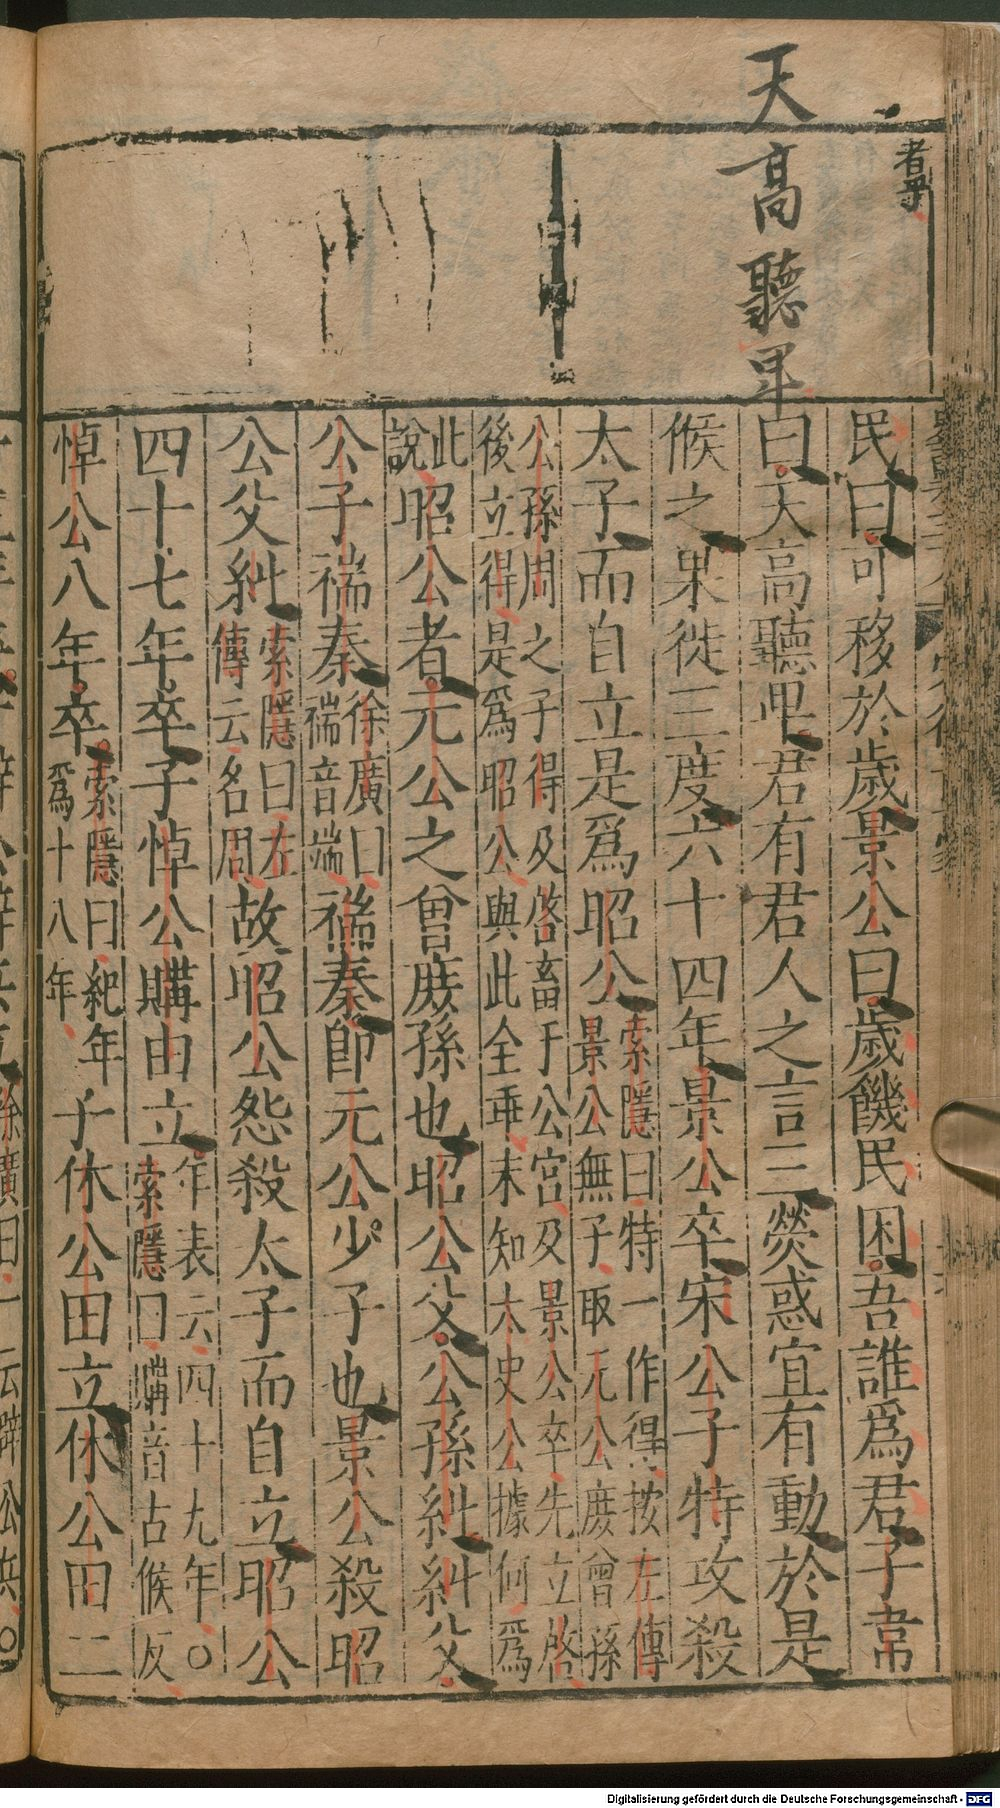 天高聽卑
民曰可移於歲景公曰歲饑民困吾誰爲君子韋
曰天高聽卑君有君人之言三熒惑宜有動於是
候之果徙三度六十四年景公卒宋公子特攻殺
太子而自立是爲昭公
索隱曰特一作得按左傳
景公無子取元公庶曾孫
公孫周之子得及啓畜于公宮及景公卒先立啓
後立得是爲昭公與此全乖未知太史公據何爲
此
說
昭公者元公之曾庶孫也昭公父公孫糾糾父
公子褍秦
徐廣曰
褍音端
褍秦即元公少子也景公殺昭
公父糾
索隱曰左
傳云名周
故昭公怨殺太子而自立昭公
四十七年卒子悼公購由立
年表云四十九年○
索隱曰購音古候反
悼公八年卒
索隱曰紀年
爲十八年
子休公田立休公田二
Digitalisierung gefördert durch die Deutsche Forschungsgemeinschaft - DFG